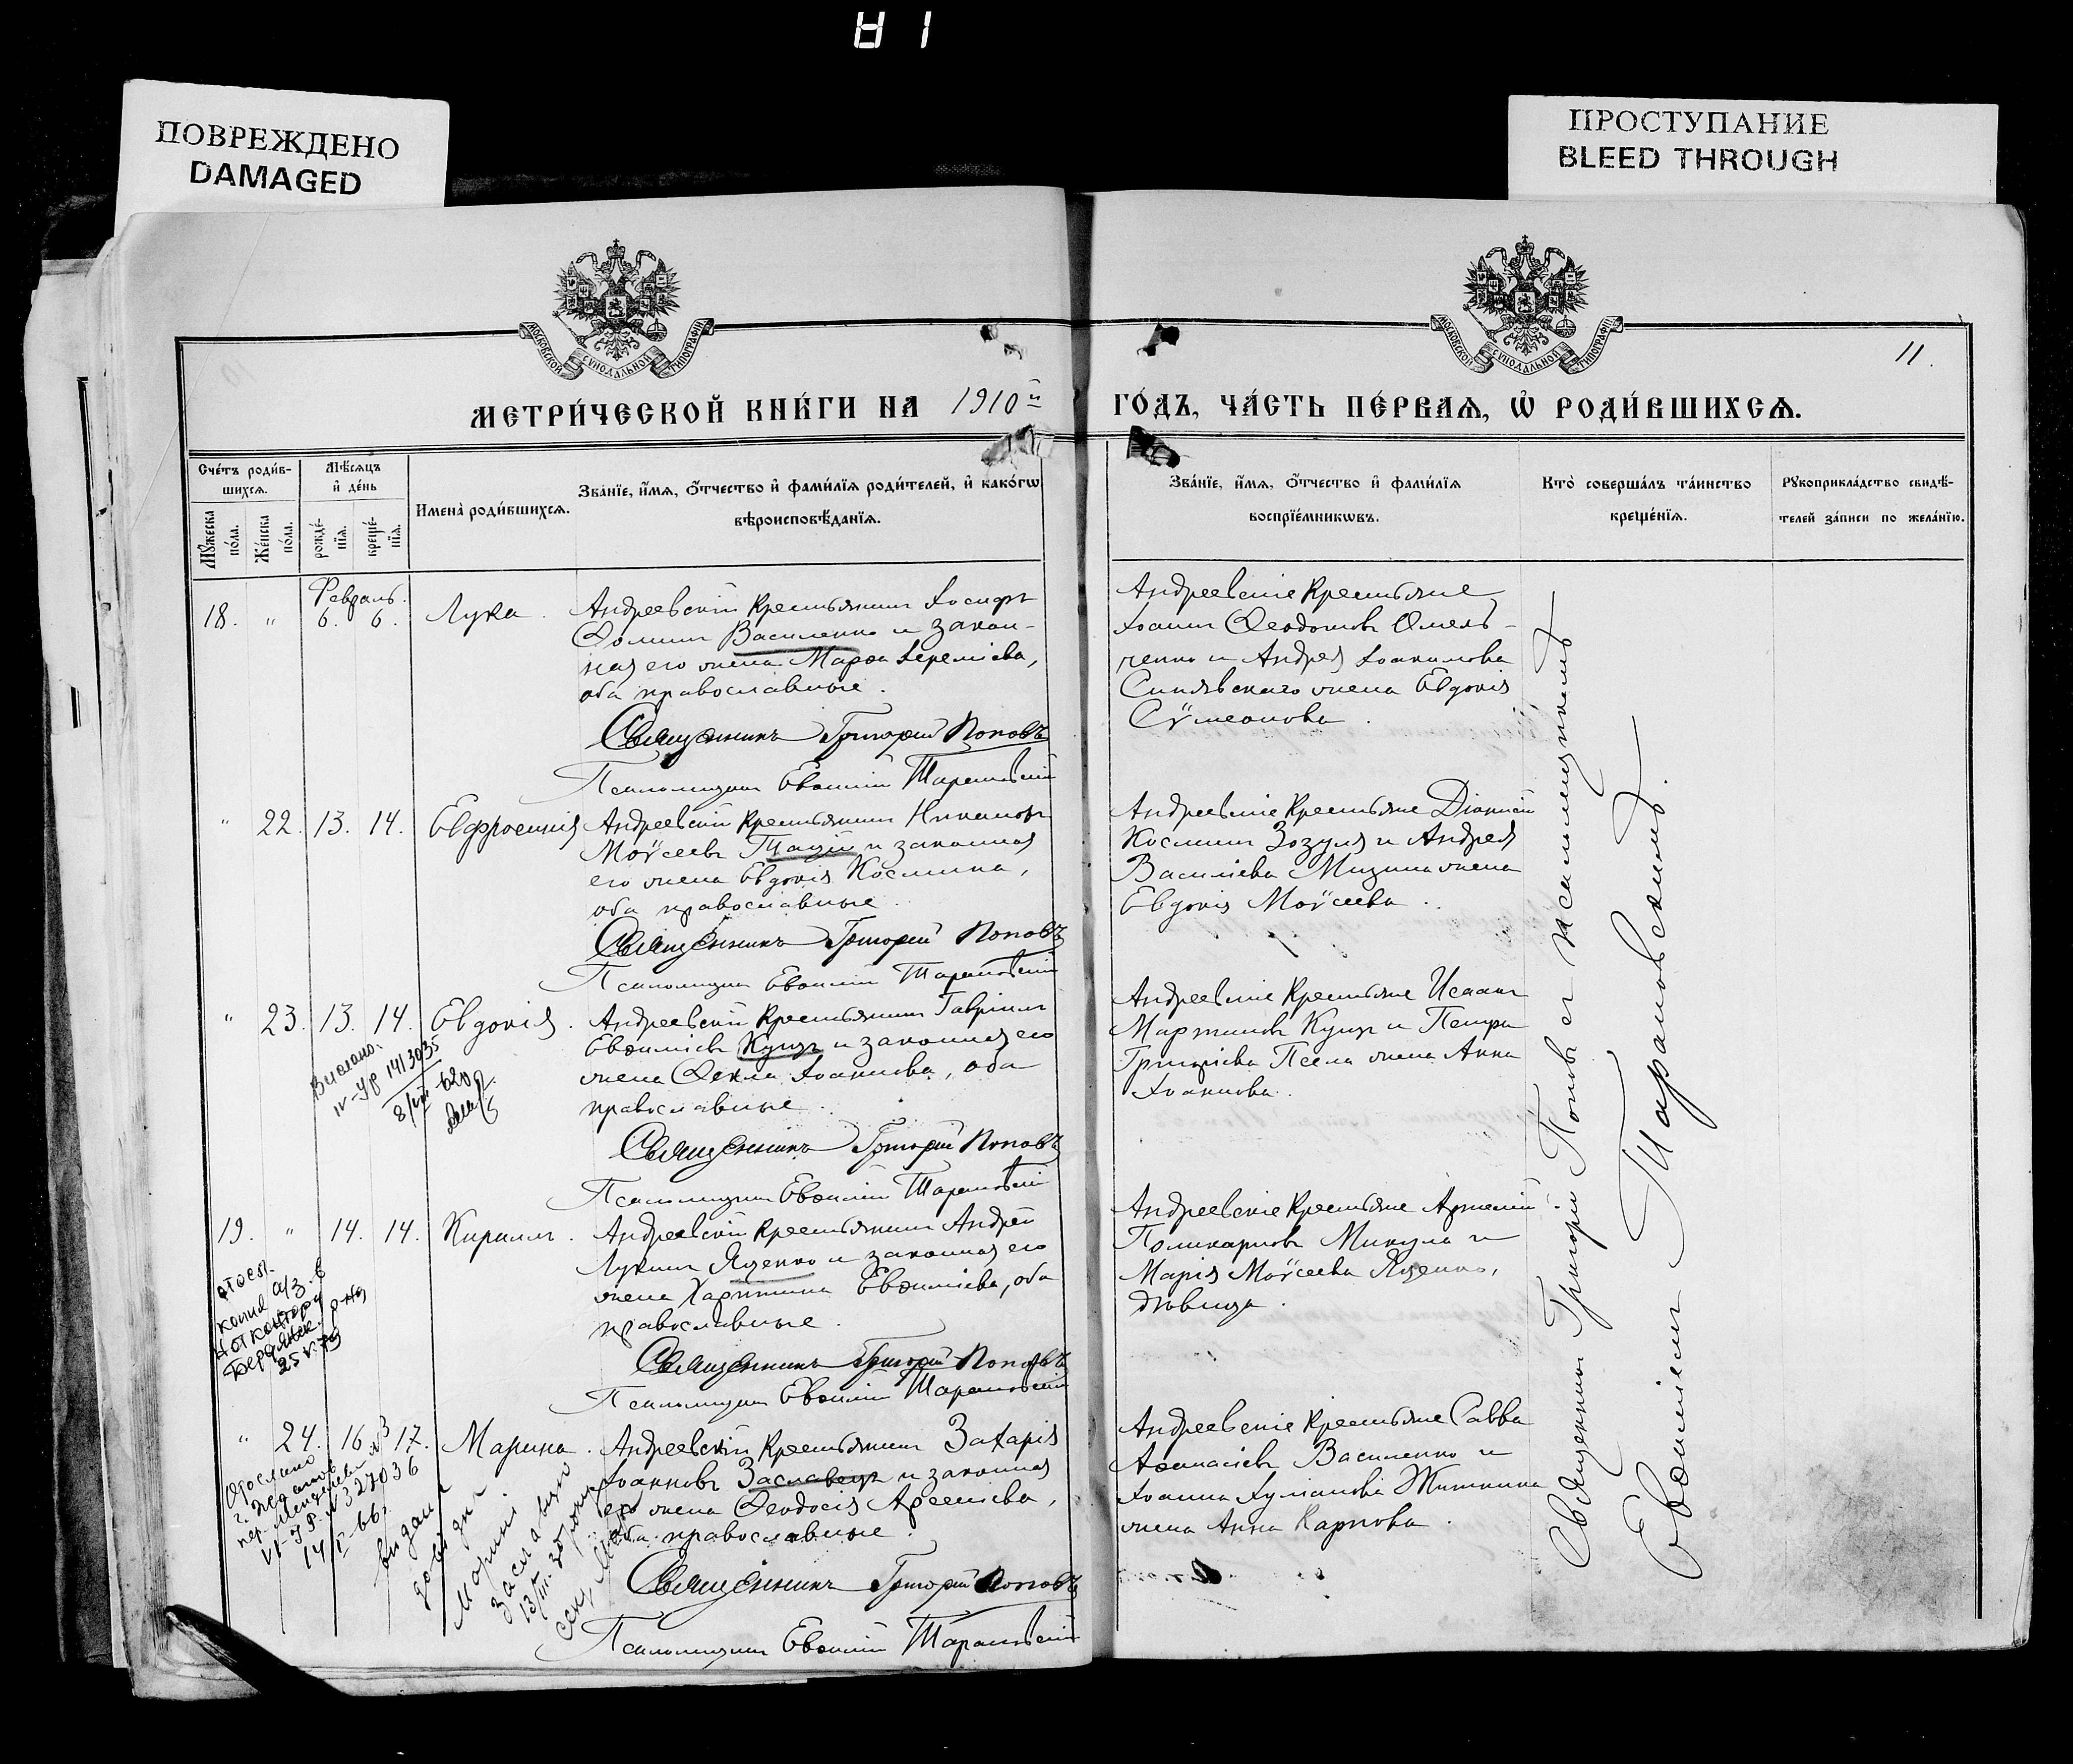 ПОВРЕЖДЕНО
DAMAGED
ПРОСТУПАНИЕ
BLEED THROUGH
МОСКОВСКОЙ СѴНОДАЛЬНОЙ ТИПОГРАФІИ
МОСКОВСКОЙ СѴНОДАЛЬНОЙ ТИПОГРАФІИ
11.
МЕТРИ́ЧЕСКОЙ КНИ́ГИ НА 1910й ГО́ДЪ, ЧА́СТЬ ПЕ́РВАЯ, Ѡ РОДИ́ВШИХСЯ.
Сче́тъ роди́в-
шихся.
Мꙋ́жеска по́ла.
Же́нска по́ла.
Мѣ́сяцъ
и҆ де́нь
рожде́-
нїя.
креще́-
нїя.
И҆мена̀ роди́вшихся.
Зва́нїе, и҆́мя, ѻ҆́тчество и҆ фами́лїя роди́телей, и҆ како́гѡ
вѣроисповѣ́данїя.
Зва́нїе, и҆́мя, ѻ҆́тчество и҆ фами́лїя
воспрїе́мникѡвъ.
Кто̀ соверша́лъ та́инство
креще́нїя.
Рꙋкоприкла́дство свидѣ́-
телей за́писи по жела́нїю.
Февраль.
18. " 6. 6. Лука.
Андреевскій крестьянинъ Іосифъ
Ѳоминъ Василенко и закон-
ная его жена Марѳа Іереміева,
оба православные.
Священникъ Григорій Поповъ
Псаломщикъ Евѳимій Тарановскій
Андреевскіе крестьяне
Іоаннъ Ѳеодотовъ Омель-
ченко и Андрея Іоакимова
Синявскаго жена Евдокія
Сѵмеонова.
" 22. 13. 14. Евфросинія
Андреевскій крестьянинъ Никаноръ
Моѵсеевъ Тацій и законная
его жена Евдокія Космина,
оба православные.
Священникъ Григорій Поповъ
Псаломщикъ Евѳимій Тарановскій
Андреевскіе крестьяне Діонисій
Косминъ Зозуля и Андрея
Василіева Мизина жена
Евдокія Моѵсеева.
" 23. 13. 14. Евдокія.
Андреевскій крестьянинъ Гавріилъ
Евѳиміевъ Куцъ и законная его
жена Ѳекла Іоаннова, оба
православные.
Священникъ Григорій Поповъ
Псаломщикъ Евѳимій Тарановскій
Андреевскіе крестьяне Исаакъ
Мартиновъ Куцъ и Петра
Григоріева Псела жена Анна
Іоаннова.
Выслано.
IV-УР 1413035
19. " 14. 14. Кириллъ.
Андреевскій крестьянинъ Андрей
Лукинъ Яценко и законная его
жена Харитина Евѳиміева, оба
православные.
Священникъ Григорій Поповъ
Псаломщикъ Евѳимій Тарановскій
Андреевскіе крестьяне Артемій
Поликарповъ Микула и
Марія Моѵсеева Яценко,
дѣвица.
копия а/з в
нотконтору
Бердянск. р-на
25.V.79
" 24. 16. 17. Марина.
Андреевскій крестьянинъ Захарія
Іоанновъ Заславецъ и законная
его жена Ѳеодосія Арсеніева,
оба православные.
Священникъ Григорій Поповъ
Псаломщикъ Евѳимій Тарановскій
Андреевскіе крестьяне Савва
Аѳанасіевъ Василенко и
Іоанна Іуліанова Житника
жена Анна Карпова.
г. Жданов
VI-УР №327036
14/I-66.
видан
довідку
Марині
Священникъ Григорій Поповъ съ псаломщикомъ
Евѳиміемъ Тарановскимъ.